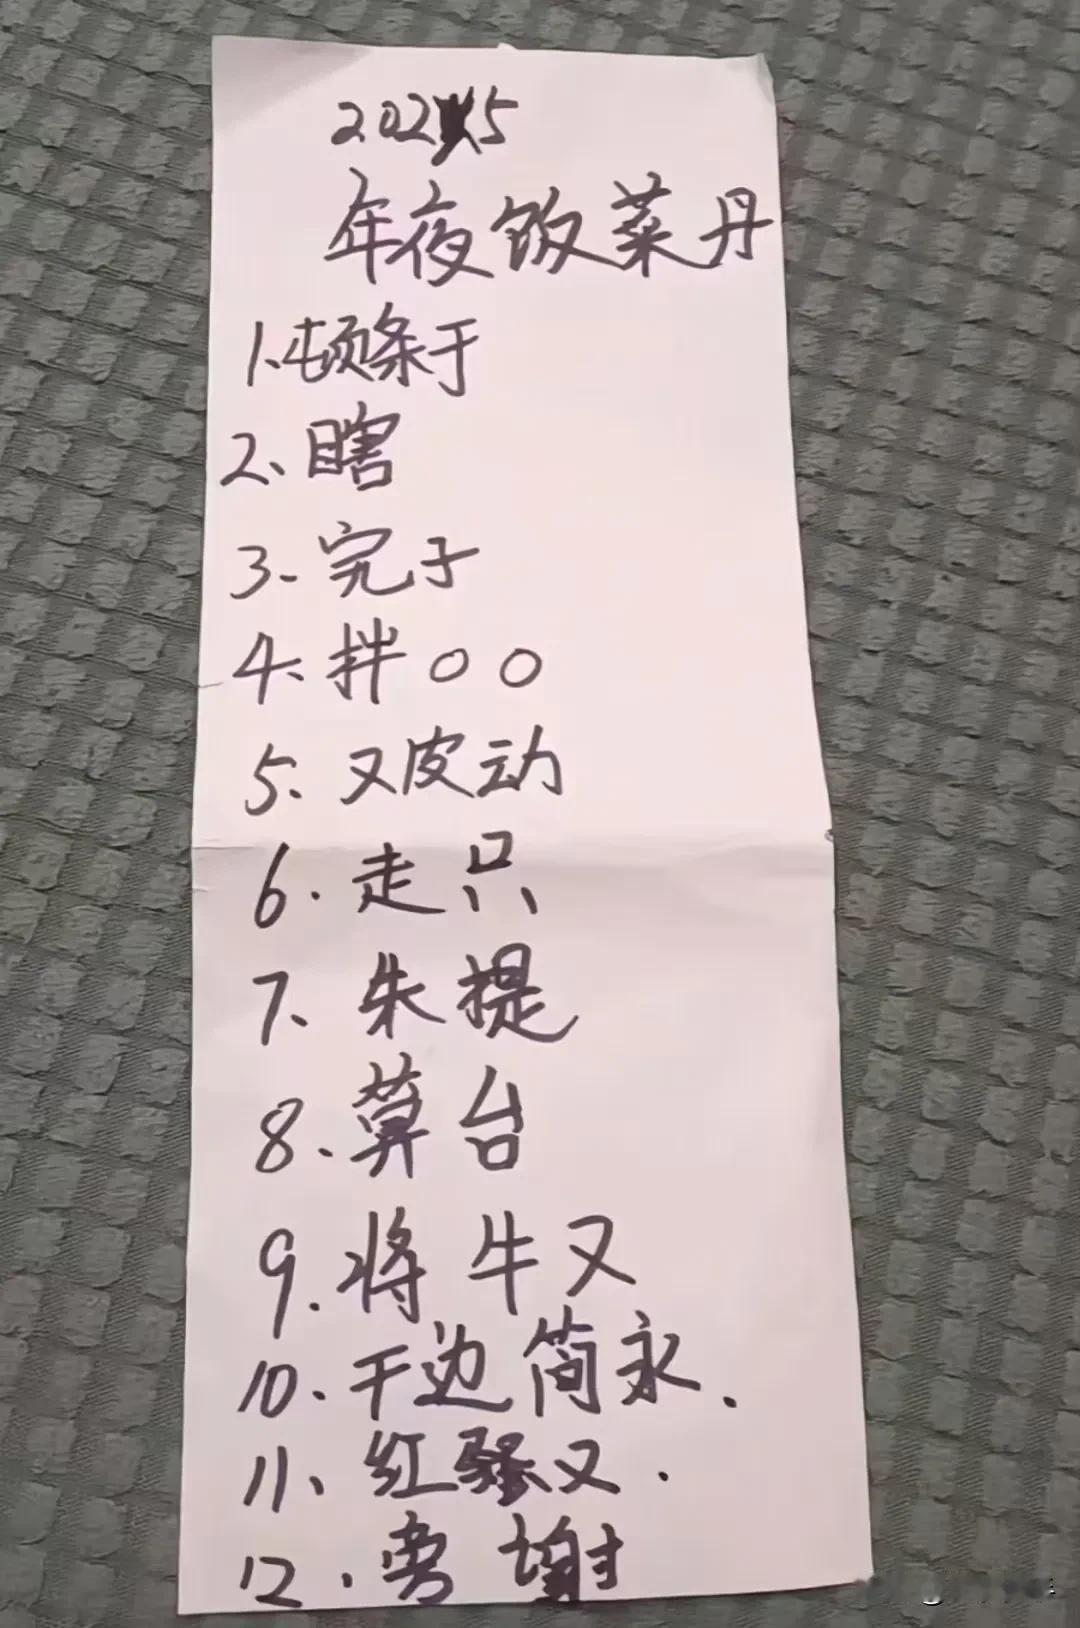 2025
年夜饭菜丹
1、顿条于
2、瞎
3、完子
4、拌〇〇
5、又皮动
6.走只
7、朱提
8、算台
9.将牛又
10.干边简永.
11、红骚又.
12.旁谢